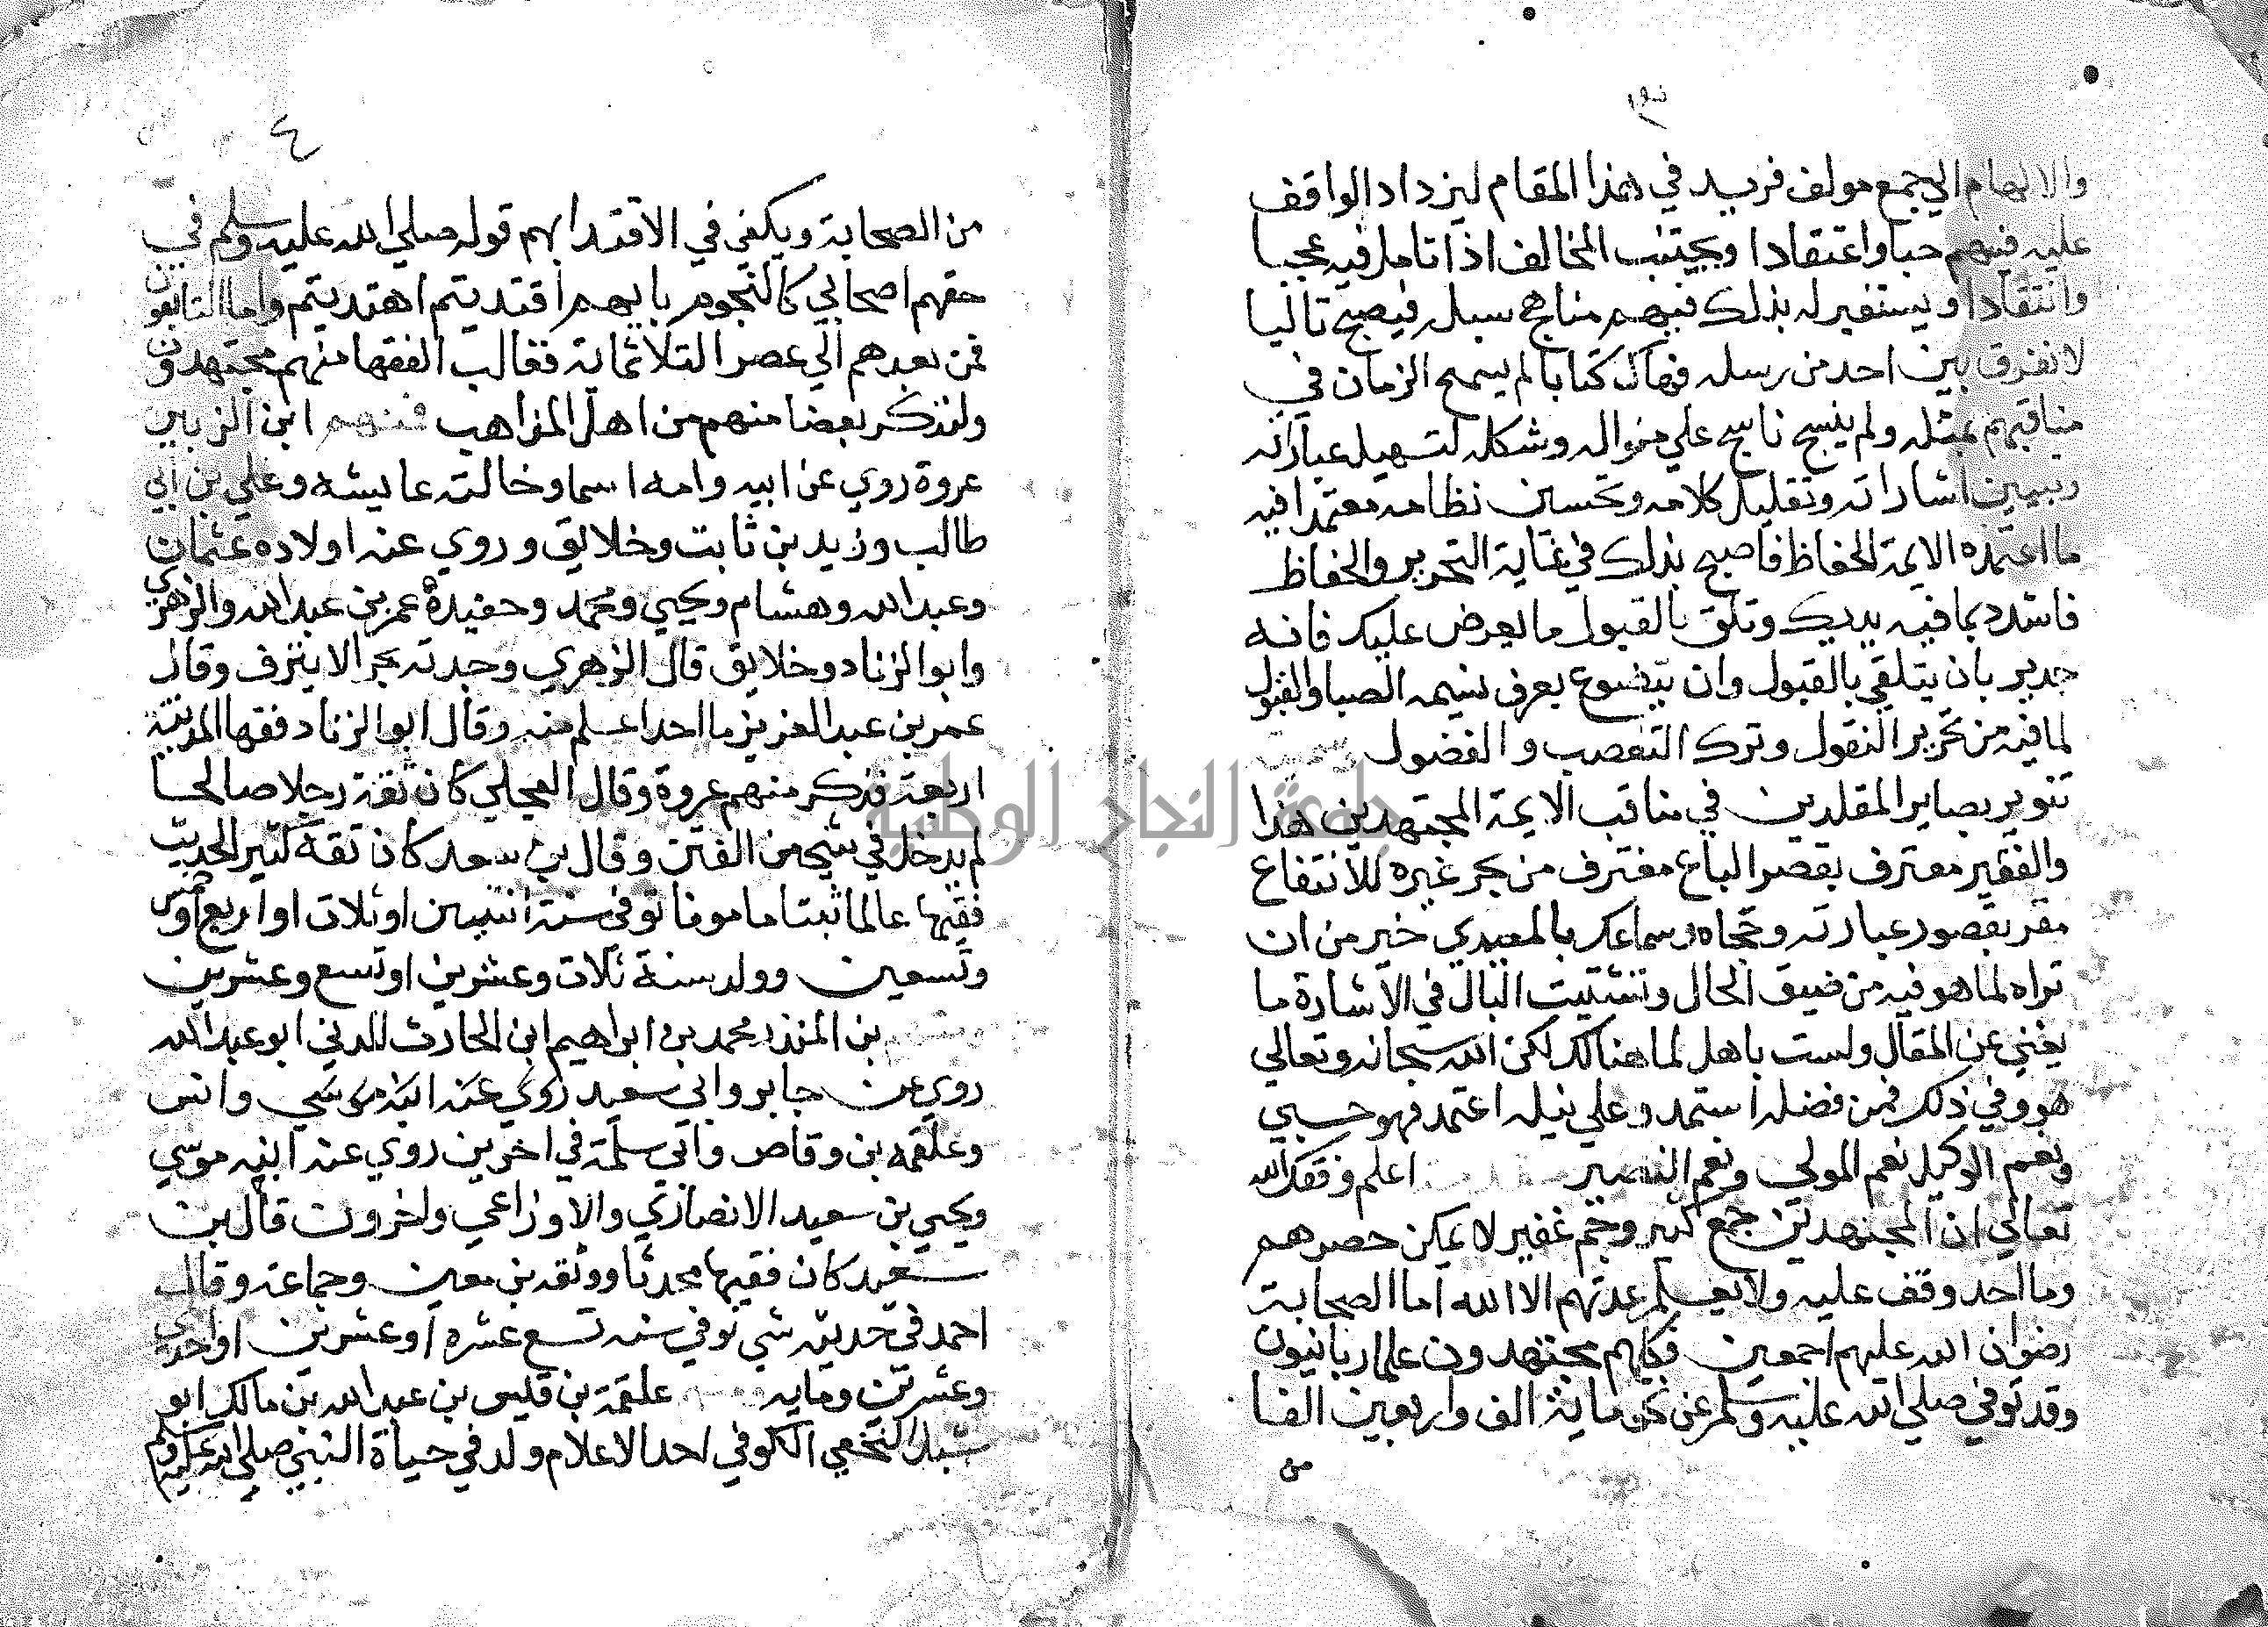 والالهام الي جمع مولف فريد في هذا المقام ليزداد الواقف
عليه فيهم حبا واعتقادا ويجتنب المخالف اذا تامل فيه عجبا
وانتقادا ويستنير له بذلك فيهم مناهج سبله فيصبح تاليا
لا نفرق بين احد من رسله فهاك كتابا لم يسمح الزمان في
مناقبهم بمثله ولم ينسج ناسج علي منواله وشكله لتسهيل عباراته
وتبيين اشاراته وتقليل كلامه وتحسين نظامه معتمدا فيه
ما اعتمده الايمة الحفاظ فاصبح بذلك في غاية التحرير والحفاظ
فاشدد بما فيه يديك وتلق بالقبول ما يعرض عليك فانه
جدير بان يتلقي بالقبول وان يتضوع بعرف نسيمه الصبا والقبول
لما فيه من تحرير النقول وترك التعصب والفضول
تنوير بصاير المقلدين في مناقب الايمة المجتهدين هذا
والفقير معترف بقصر الباع مغترف من بحر غيره للانتفاع
مقر بقصور عبارته وسماعك بالمعيدي خير من ان
تراه لما هو فيه من ضيق الحال وتشتيت البال في الاشارة ما
يغني عن المقال ولست باهل لما هنالك لكن الله سبحانه وتعالي
هو وفي ذلك فمن فضله استمد وعلي نيله اعتمد فهو حسبي
ونعم الوكيل نعم المولي ونعم النصير اعلم وفقك الله
تعالي ان المجتهدين جمع كثير وجم غفير لا يمكن حصرهم
وما احد وقف عليه ولا يعلم عدتهم الا الله اما الصحابة
رضوان الله عليهم اجمعين فكلهم مجتهدون علما ربانيون
وقد توفي صلي الله عليه وسلم عن مائة الف واربعين الفا
من
٤
من الصحابة ويكفي في الاقتدا بهم قوله صلي الله عليه وسلم في
حقهم اصحابي كالنجوم بايهم اقتديتم اهتديتم واما التابعون
فمن بعدهم الي عصر الثلاثماية فغالب الفقها منهم مجتهدون
ولنذكر بعضا منهم من اهل المذاهب فمنهم ابن الزبير
عروة روي عن ابيه وامه اسما وخالته عايشه وعلي بن ابي
طالب وزيد بن ثابت وخلايق وروي عنه اولاده عثمان
وعبد الله وهشام ويحيي ومحمد وحفيده عمر بن عبد الله والزهري
وابو الزناد وخلايق قال الزهري وجدته بحرا لا ينزف وقال
عمر بن عبد العزيز ما احد اعلم منه وقال ابو الزناد فقها المدينة
اربعة فذكر منهم عروة وقال العجلي كان ثقة رجلا صالحا
لم يدخل في شي من الفتن وقال بن سعد كان ثقة كثير الحديث
فقيها عالما ثبتا مامونا توفي سنة اثنتين او ثلاث او اربع او خمس
وتسعين وولد سنة ثلاث وعشرين او تسع وعشرين
بن المنذر محمد بن ابراهيم ابن الحارث المدني ابو عبد الله
روي عن جابر وابي سعيد روي عنه ابنه موسي وانس
وعلقمه بن وقاص وابي سلمة في اخرين روي عنه ابنيه موسي
ويحيي بن سعيد الانصاري والاوزاعي واخرون قال بن
سعيد كان فقيها محدثا ووثقه بن معين وجماعة وقال
احمد في حديثه شي توفي سنه تسع عشره او عشرين او احدي
وعشرين ومايه علقمة بن قيس بن عبد الله بن مالك ابو
شبل النخعي الكوفي احد الاعلام ولد في حياة النبي صلي الله عليه وسلم
جامعة النجاح الوطنية